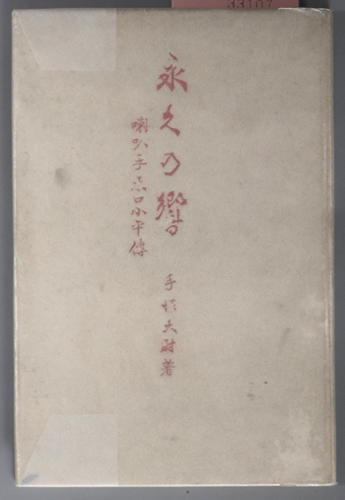 33107
永久の響
喇叭手木口小平傳
手塚大尉著